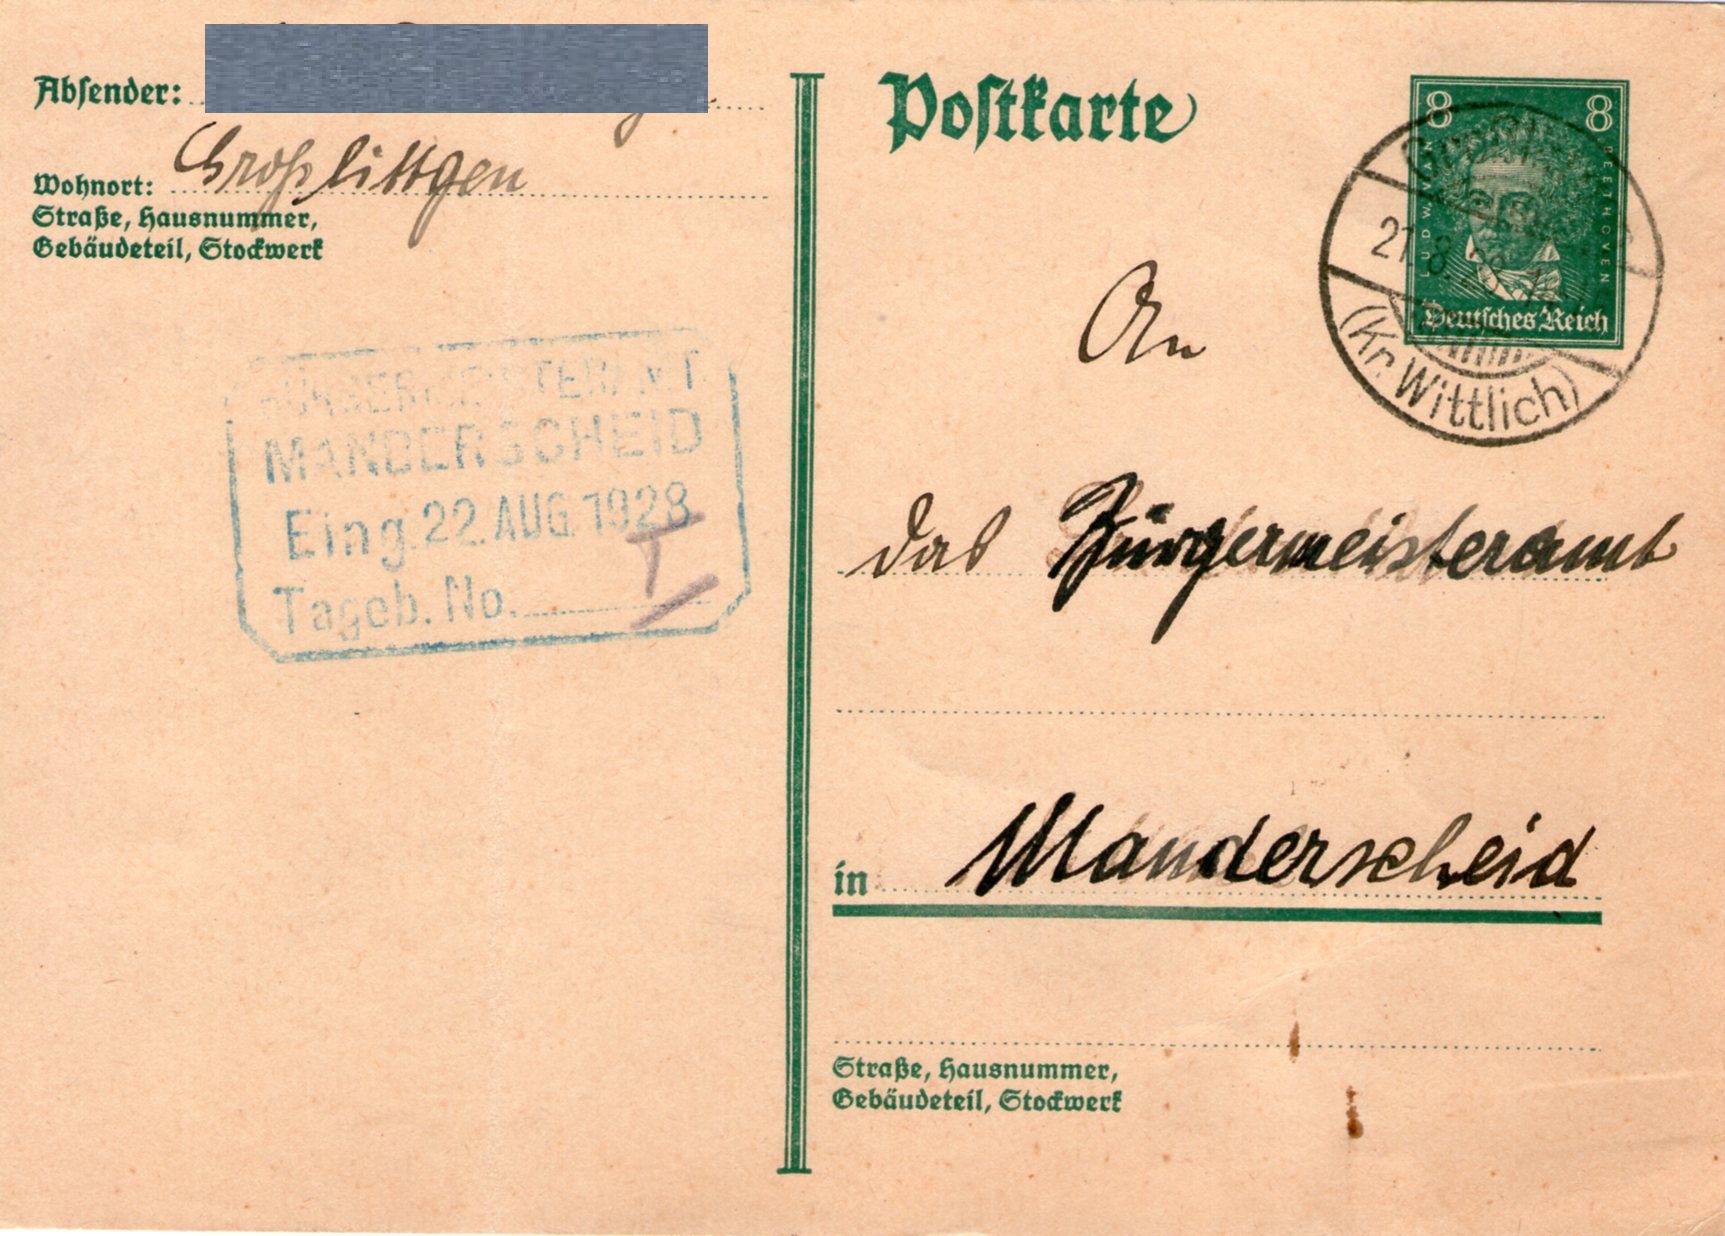 Absender:
Großlittgen
Wohnort:
Straße, Hausnummer,
Gebäudeteil, Stockwerk
BÜRGERMEISTERAMT
MANDERSCHEID
Eing. 22. AUG. 1928
Tageb. No.
Postkarte
8 8
LUDWIG VAN BEETHOVEN
Deutsches Reich
21.8.28
(Kr. Wittlich)
An
das Bürgermeisteramt
in Manderscheid
Straße, Hausnummer,
Gebäudeteil, Stockwerk